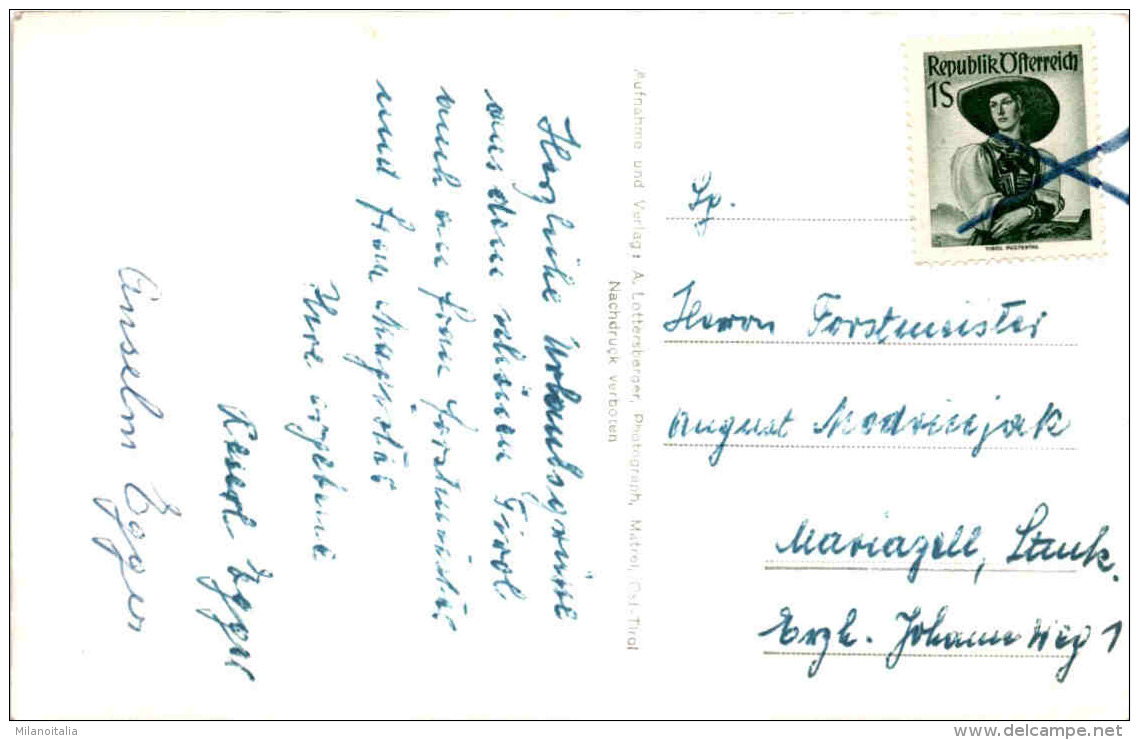 Herzliche Urlaubsgrüße
aus dem schönen Tirol
auch an Frau Forstmeister
und Frau Magister
Ihre ergebene
Egger
Anselm Egger
Aufnahme und Verlag: A. Lottersberger, Photograph, Matrei, Ost-Tirol
Nachdruck verboten
Republik Österreich
1S
TIROL PUSTERTAL
Herrn Forstmeister
August
Mariazell, Stmk.
Erzh. Johann Weg 1
Milanoitalia
delcampe.net